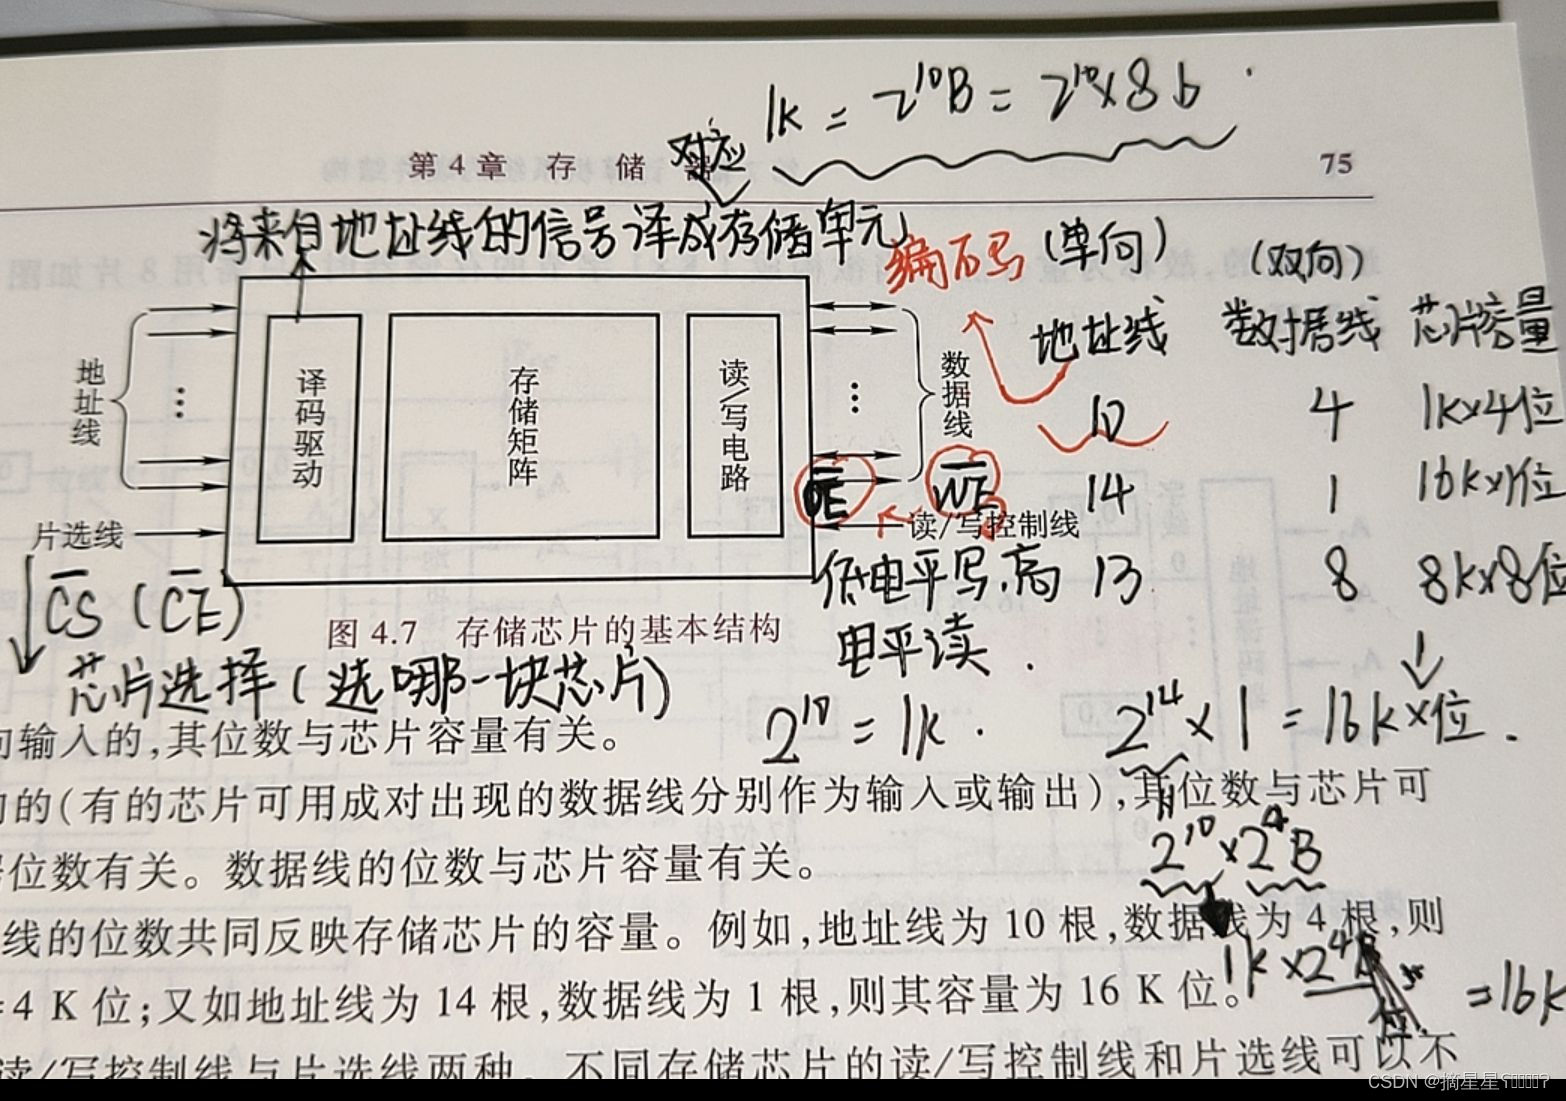 1K = 2¹⁰B = 2¹⁰×8b
对应
第4章 存储器 75
将来自地址线的信号译成存储单元
(单向) (双向)
地址线 数据线 芯片容量
10 4 1K×4位
14 1 16K×1位
13 8 8K×8位
地址线
片选线
译码驱动
存储矩阵
读/写电路
数据线
OE WE
读/写控制线
低电平写,高
电平读.
CS (CE)
芯片选择(选哪一块芯片)
图 4.7 存储芯片的基本结构
2¹⁰ = 1K.
2¹⁴×1 = 16K×位.
2¹⁰×2⁴B
1K×2⁴
=16K
向输入的,其位数与芯片容量有关。
的(有的芯片可用成对出现的数据线分别作为输入或输出),其位数与芯片可
位数有关。数据线的位数与芯片容量有关。
线的位数共同反映存储芯片的容量。例如,地址线为 10 根,数据线为 4 根,则
=4 K 位;又如地址线为 14 根,数据线为 1 根,则其容量为 16 K 位。
读/写控制线与片选线两种。不同存储芯片的读/写控制线和片选线可以不
CSDN @摘星星